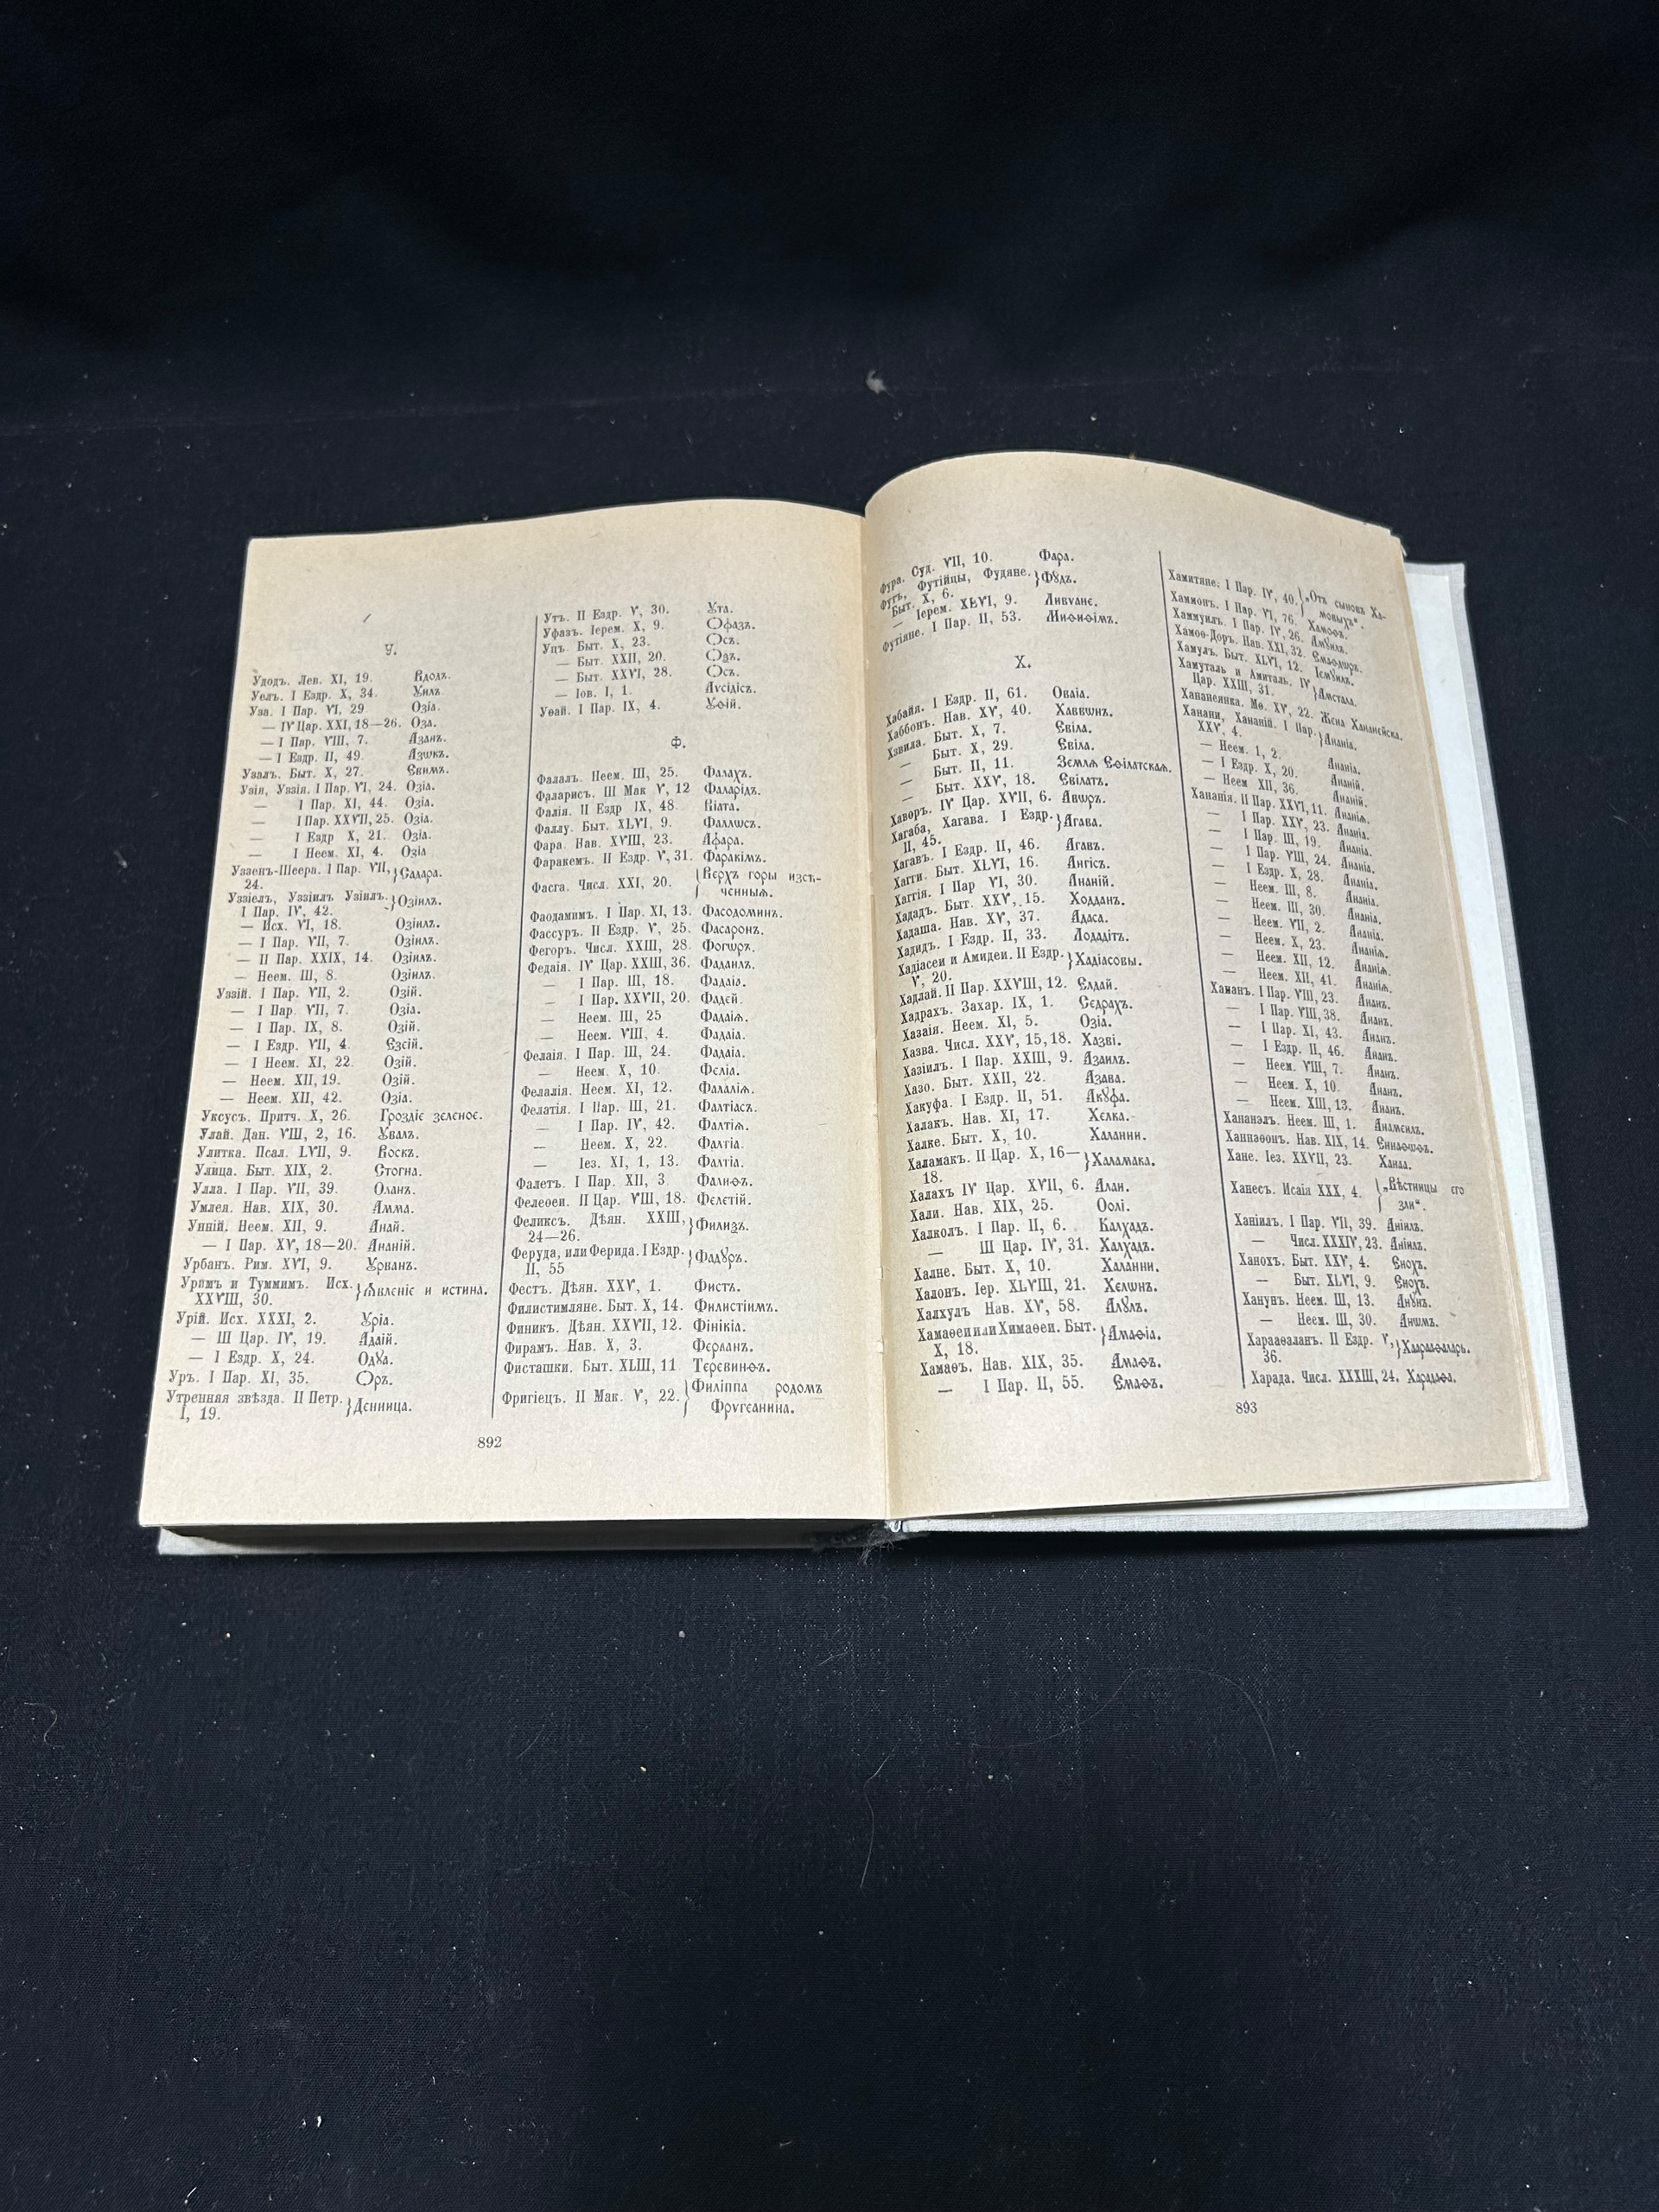 У.
Удодъ. Лев. XI, 19. Вдодъ.
Уелъ. I Ездр. X, 34. Ꙋилъ.
Уза. I Пар. VI, 29 Озіа.
— IV Цар. XXI, 18—26. Оза.
— I Пар. VIII, 7. Азанъ.
— I Ездр. II, 49. Азѡкъ.
Узалъ. Быт. X, 27. Євимъ.
Узія, Уззія. I Пар. VI, 24. Озіа.
— I Пар. XI, 44. Озіа.
— I Пар. XXVII, 25. Озіа.
— I Ездр X, 21. Озіа.
— I Неем. XI, 4. Озіа
Уззенъ-Шеера. I Пар. VII, } Саара.
24.
Уззіелъ, Уззіилъ Узіилъ. } Озіилъ.
I Пар. IV, 42.
— Исх. VI, 18. Озіилъ.
— I Пар. VII, 7. Озіилъ.
— II Пар. XXIX, 14. Озіилъ.
— Неем. III, 8. Озіилъ.
Уззій. I Пар. VII, 2. Озій.
— I Пар. VII, 7. Озіа.
— I Пар. IX, 8. Озій.
— I Ездр. VII, 4. Єзсій.
— I Неем. XI, 22. Озій.
— Неем. XII, 19. Озій.
— Неем. XII, 42. Озіа.
Уксусъ. Притч. X, 26. Гроздіе зеленое.
Улай. Дан. VIII, 2, 16. Ꙋвалъ.
Улитка. Псал. LVII, 9. Воскъ.
Улица. Быт. XIX, 2. Стогна.
Улла. I Пар. VII, 39. Оланъ.
Умлея. Нав. XIX, 30. Амма.
Унній. Неем. XII, 9. Анай.
— I Пар. XV, 18—20. Ананій.
Урбанъ. Рим. XVI, 9. Ꙋрванъ.
Уримъ и Туммимъ. Исх. } Ꙗвленіе и истина.
XXVIII, 30.
Урій. Исх. XXXI, 2. Ꙋріа.
— III Цар. IV, 19. Адаій.
— I Ездр. X, 24. Одꙋа.
Уръ. I Пар. XI, 35. Оръ.
Утренняя звѣзда. II Петр. } Денница.
I, 19.
Утъ. II Ездр. V, 30. Ꙋта.
Уфазъ. Іерем. X, 9. Офазъ.
Уцъ Быт. X, 23. Осъ.
— Быт. XXII, 20. Озъ.
— Быт. XXVI, 28. Осъ.
— Іов. I, 1. Аѵсідісъ.
Уѳай. I Пар. IX, 4. Ꙋѳій.
Ф.
Фалалъ. Неем. III, 25. Фалахъ.
Фаларисъ. III Мак V, 12 Фаларідъ.
Фалія. II Ездр IX, 48. Віата.
Фаллу. Быт. XLVI, 9. Фаллѡсъ.
Фара. Нав. XVIII, 23. Афара.
Фаракемъ. II Ездр. V, 31. Фаракімъ.
Фасга. Числ. XXI, 20. { Верхъ горы изсѣ-
ченныя.
Фаодамимъ. I Пар. XI, 13. Фасодоминъ.
Фассуръ. II Ездр. V, 25. Фасаронъ.
Фегоръ. Числ. XXIII, 28. Фогѡръ.
Федаія. IV Цар. XXIII, 36. Фадаилъ.
— I Пар. III, 18. Фадаіа.
— I Пар. XXVII, 20. Фадей.
— Неем. III, 25 Фадаіѧ.
— Неем. VIII, 4. Фадаіа.
Фелаія. I Пар. III, 24. Фадаіа.
— Неем. X, 10. Феліа.
Фелалія. Неем. XI, 12. Фалаліѧ.
Фелатія. I Пар. III, 21. Фалтіасъ.
— I Пар. IV, 42. Фалтіѧ.
— Неем. X, 22. Фалтіа.
— Іез. XI, 1, 13. Фалтіа.
Фалетъ. I Пар. XII, 3 Фалиѳъ.
Фелеѳеи. II Цар. VIII, 18. Фелетій.
Феликсъ. Дѣян. XXIII, } Филиѯъ.
24—26.
Феруда, или Ферида. I Ездр. } Фадꙋръ.
II, 55
Фестъ. Дѣян. XXV, 1. Фистъ.
Филистимляне. Быт. X, 14. Филистіимъ.
Финикъ. Дѣян. XXVII, 12. Фінікіа.
Фирамъ. Нав. X, 3. Ферланъ.
Фисташки. Быт. XLIII, 11 Теревинѳъ.
Фригіецъ. II Мак. V, 22. { Филіппа родомъ
Фрѵгеанина.
892
Фура. Суд. VII, 10. Фара.
Футъ, Футійцы, Фудяне. } Фꙋдъ.
Быт. X, 6.
— Іерем. XLVI, 9. Ливѵане.
Футіяне. I Пар. II, 53. Миѳиѳімъ.
Х.
Хабайя. I Ездр. II, 61. Оваіа.
Хаббонъ. Нав. XV, 40. Хаввѡнъ.
Хавила. Быт. X, 7. Євіла.
— Быт. X, 29. Євіла.
— Быт. II, 11. Землѧ Євілатскаѧ.
— Быт. XXV, 18. Євілатъ.
Хаворъ. IV Цар. XVII, 6. Авѡръ.
Хагаба, Хагава. I Ездр. } Агава.
II, 45.
Хагавъ. I Ездр. II, 46. Агавъ.
Хагги. Быт. XLVI, 16. Ангісъ.
Хаггія. I Пар VI, 30. Ананій.
Хададъ. Быт. XXV, 15. Ходданъ.
Хадаша. Нав. XV, 37. Адаса.
Хадидъ. I Ездр. II, 33. Лодадітъ.
Хадіасеи и Амидеи. II Ездр. } Хадіасовы.
V, 20.
Хадлай. II Пар. XXVIII, 12. Єлдай.
Хадрахъ. Захар. IX, 1. Седрахъ.
Хазаія. Неем. XI, 5. Озіа.
Хазва. Числ. XXV, 15, 18. Хазві.
Хазіилъ. I Пар. XXIII, 9. Азаилъ.
Хазо. Быт. XXII, 22. Азава.
Хакуфа. I Ездр. II, 51. Акꙋфа.
Халакъ. Нав. XI, 17. Хелка.
Халке. Быт. X, 10. Халанни.
Халамакъ. II Цар. X, 16— } Халамака.
18.
Халахъ IV Цар. XVII, 6. Алаи.
Хали. Нав. XIX, 25. Оолі.
Халкол. I Пар. II, 6. Калхадъ.
— III Цар. IV, 31. Халхадъ.
Халне. Быт. X, 10. Халанни.
Халонъ. Іер. XLVIII, 21. Хелѡнъ.
Халхулъ Нав. XV, 58. Алꙋлъ.
Хамаѳеи или Химаѳеи. Быт. } Амаѳіа.
X, 18.
Хамаѳъ. Нав. XIX, 35. Амаѳъ.
— I Пар. II, 55. Емаѳъ.
Хамитяне. I Пар. IV, 40. } „Отъ сыновъ Ха-
мовыхъ“.
Хаммонъ. I Пар. VI, 76. Хамоѳъ.
Хаммуилъ. I Пар. IV, 26. Амꙋилъ.
Хамоѳ-Доръ. Нав. XXI, 32. Емаѳдѡръ.
Хамулъ. Быт. XLVI, 12. Іемꙋилъ.
Хамуталь и Амиталь. IV } Амитала.
Цар. XXIII, 31.
Хананеянка. Мѳ. XV, 22. Жена Хананейска.
Ханани, Хананій. I Пар. } Ананіа.
XXV, 4.
— Неем. 1, 2. Ананіа.
— I Ездр. X, 20. Ананій.
— Неем XII, 36. Ананій.
Хананія. II Пар. XXVI, 11. Ананіѧ.
— I Пар. XXV, 23. Ананіа.
— I Пар. III, 19. Ананіа.
— I Пар. VIII, 24. Ананіа.
— I Ездр. X, 28. Ананіа.
— Неем. III, 8. Ананіа.
— Неем. III, 30. Ананіа.
— Неем. VII, 2. Ананіа.
— Неем. X, 23. Ананіѧ.
— Неем. XII, 12. Ананіѧ.
— Неем. XII, 41. Ананіѧ.
Хананъ. I Пар. VIII, 23. Ананъ.
— I Пар. VIII, 38. Ананъ.
— I Пар. XI, 43. Ананъ.
— I Ездр. II, 46. Ананъ.
— Неем. VIII, 7. Ананъ.
— Неем. X, 10. Ананъ.
— Неем. XIII, 13. Ананъ.
Хананэлъ. Неем. III, 1. Анамеилъ.
Ханнаѳонъ. Нав. XIX, 14. Еннаѳѡѳъ.
Хане. Іез. XXVII, 23. Ханаа.
Ханесъ. Исаія XXX, 4. { „Вѣстницы его
зли“.
Ханіилъ. I Пар. VII, 39. Аніилъ.
— Числ. XXXIV, 23. Аніилъ.
Ханохъ. Быт. XXV, 4. Енохъ.
— Быт. XLVI, 9. Енохъ.
Ханунъ. Неем. III, 13. Анꙋнъ.
— Неем. III, 30. Анѡмъ.
Хараѳаланъ. II Ездр. V, } Хараѳаларь.
36.
Харада. Числ. XXXIII, 24. Харадаѳа.
893